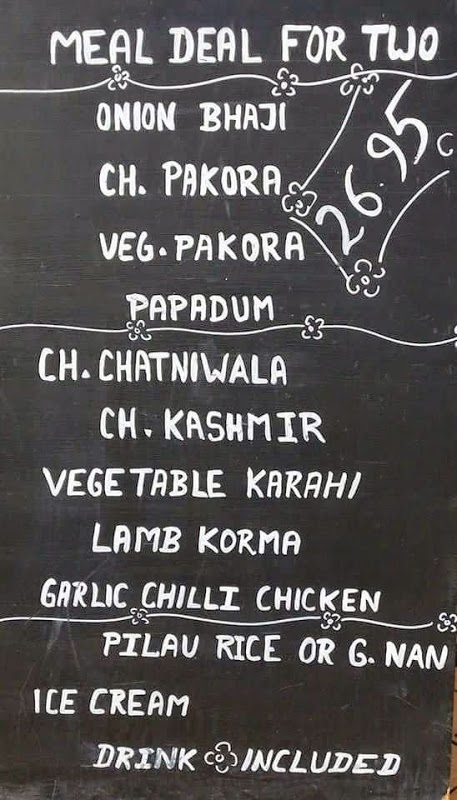 MEAL DEAL FOR TWO
ONION BHAJI
26.95
CH. PAKORA
VEG. PAKORA
PAPADUM
CH. CHATNIWALA
CH. KASHMIR
VEGETABLE KARAHI
LAMB KORMA
GARLIC CHILLI CHICKEN
PILAU RICE OR G. NAN
ICE CREAM
DRINK INCLUDED